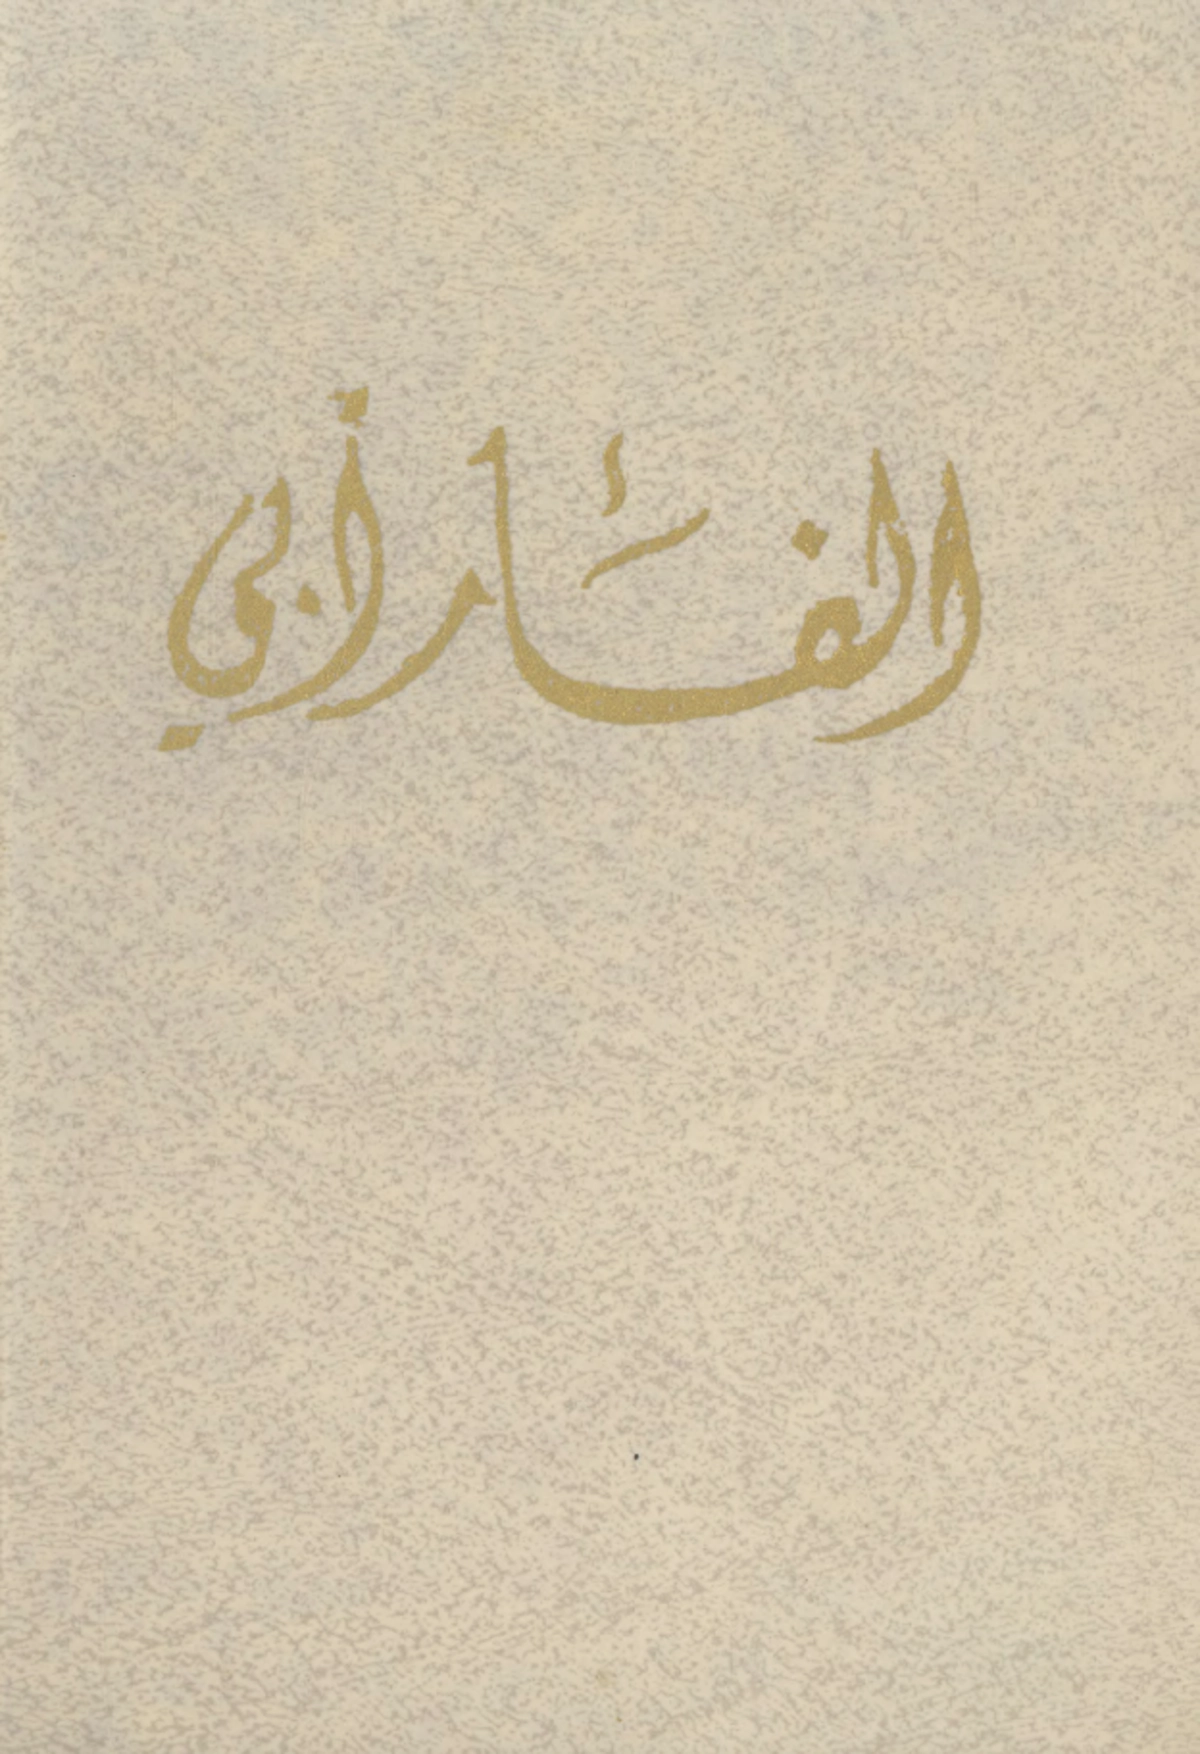 الفارابي